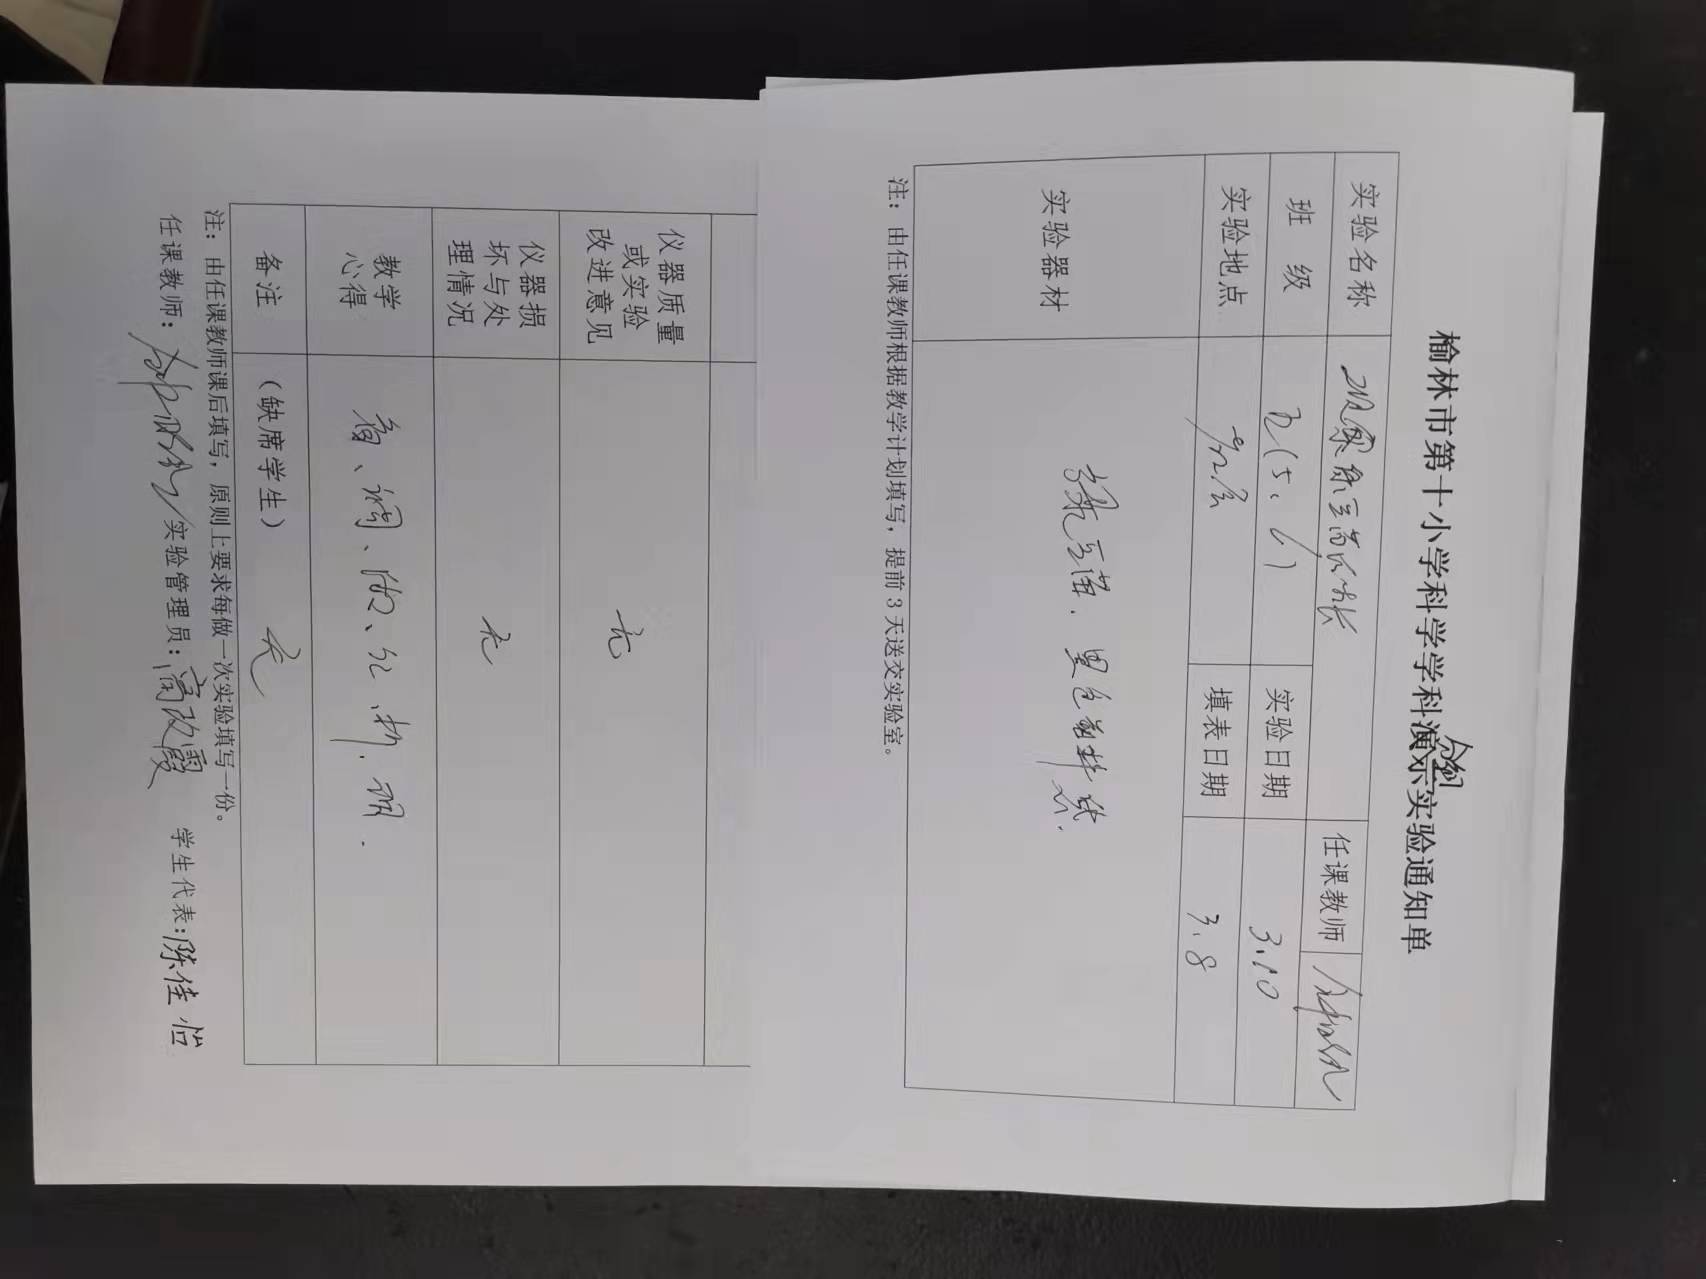 榆林市第十小学科学学科演示实验通知单
分组
实验名称 观察绿豆苗的生长 任课教师
班 级 五(5、6) 实验日期 3.10
实验地点 填表日期 3.8
实验器材 绿豆苗、黑色 纸.
注：由任课教师根据教学计划填写，提前 3 天送交实验室。
仪器质量
或实验
改进意见
无
仪器损
坏与处
理情况
无
教学
心得
看、 、做、分析.
备注 （缺席学生） 无
注：由任课教师课后填写，原则上要求每做一次实验填写一份。
任课教师： 实验管理员：高改霞 学生代表：陈佳怡